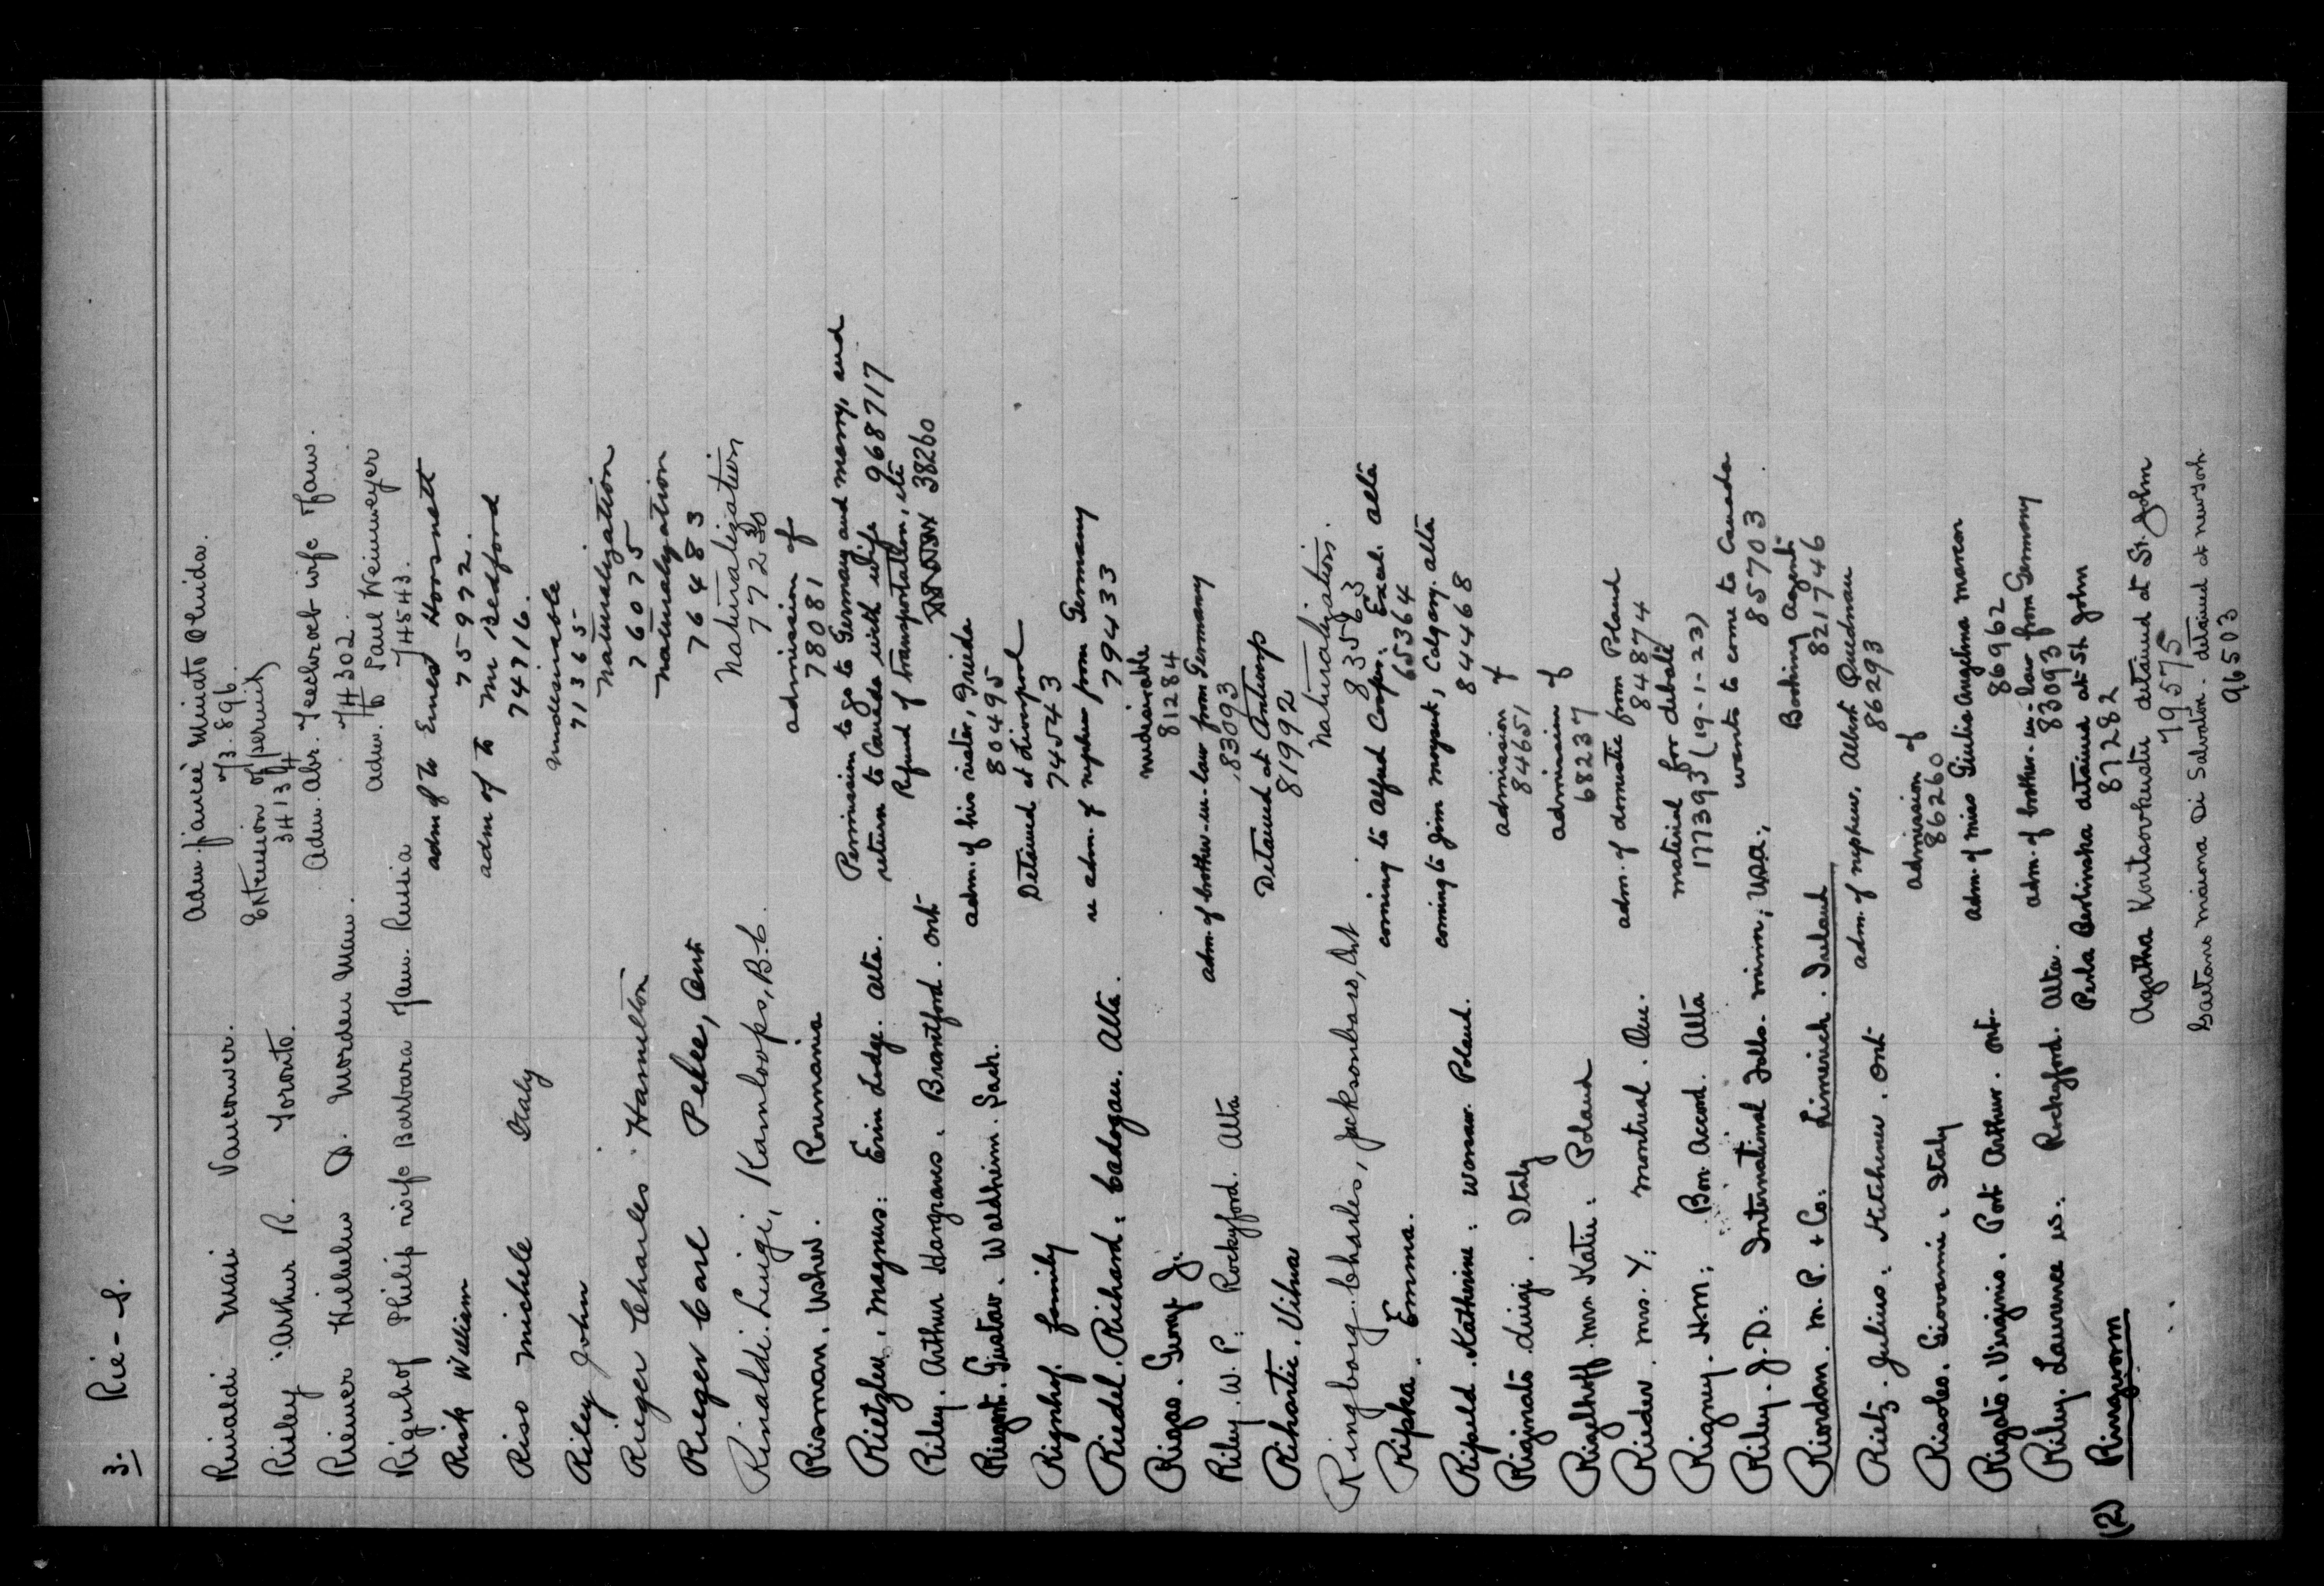 3. Rie - S.
Rinaldi Mari Vancouver. Adm. fiancée Miniato Oluida.
73896.
Rieley Arthur R. Toronto. Extension of permit
34134
Reimer Wilhelm D. Morden Man. Adm. Abr. wife & fam.
74302.
Rignhof Philip wife Barbara fam. Russia Adm. to Paul Weinmeyer
74543.
Risk William adm of to Ernest Horsnett
75972.
Riso Michele Italy adm of to Mr Bedford
74716.
Riley John undesirable
71365
Rieger Charles Hamilton Naturalization
76075
Rieger Carl Pelee, Ont Naturalization
76483
Rinaldi. Luigi, Kamloops, B.C. Naturalization
77230
Risman. Usher. Roumania admission of
78081
Rietzler. Magnus: Erin Lodge. Alta. Permission to go to Germany and marry, and
return to Canada with wife 968717
Riley. Arthur Hargraves. Brantford. Ont Refund of transportation, etc
38260
Gustav. Waldheim. Sask. adm. of his sister, Frieda
80495
Rignhof family Detained at Liverpool
74543
Riedel. Richard: Cadogan. Alta. re adm. of nephew from Germany
79433
Riopso. George J. undesirable
81284
Riley. W. P: Rockyford. Alta adm. of brother-in-law from Germany
83093
Rihartic. Vihua Detained at Antwerp
81992
Ringborg. Charles, Jacksonboro, Ont Naturalization.
83563
Ripka. Emma. coming to Alfred Cooper: Excel. Alta
65364
Ripuld. Katherine: Warsaw. Poland. coming to Jim Moysuk, Calgary. Alta
84468
Riginato. Luigi. Italy admission of
84651
Rigelhoff. Mrs. Katie: Poland admission of
68237
Rieder. Mrs. Y: Montreal. Que. adm. of domestic from Poland
84874
Rigney. H.M: Bon Accord. Alta material for debate
177393 (19-1-23)
Riley. J. D. International Falls. Minn; U.S.A., wants to come to Canada
85703
Riordan. M. P. & Co: Limerich. Ireland Booking Agent
821746
Rietz. Julius: Kitchener. Ont adm. of nephew, Albert Quednau
86293
Risoles. Giovanni: Italy admission of
86260
Rigato. Virginio. Port Arthur. Ont. adm. of Miss Giulia Angelina Marcon
86962
Riley. Laurence W: Rockyford. Alta. adm. of brother-in-law from Germany
83093
(2) Ringworm Perla Berlinska detained at St. John
87282
Agatha Koutsovkustu detained at St. John
79575
Gaetano Maiona Di Salvatore. detained at New York
96503